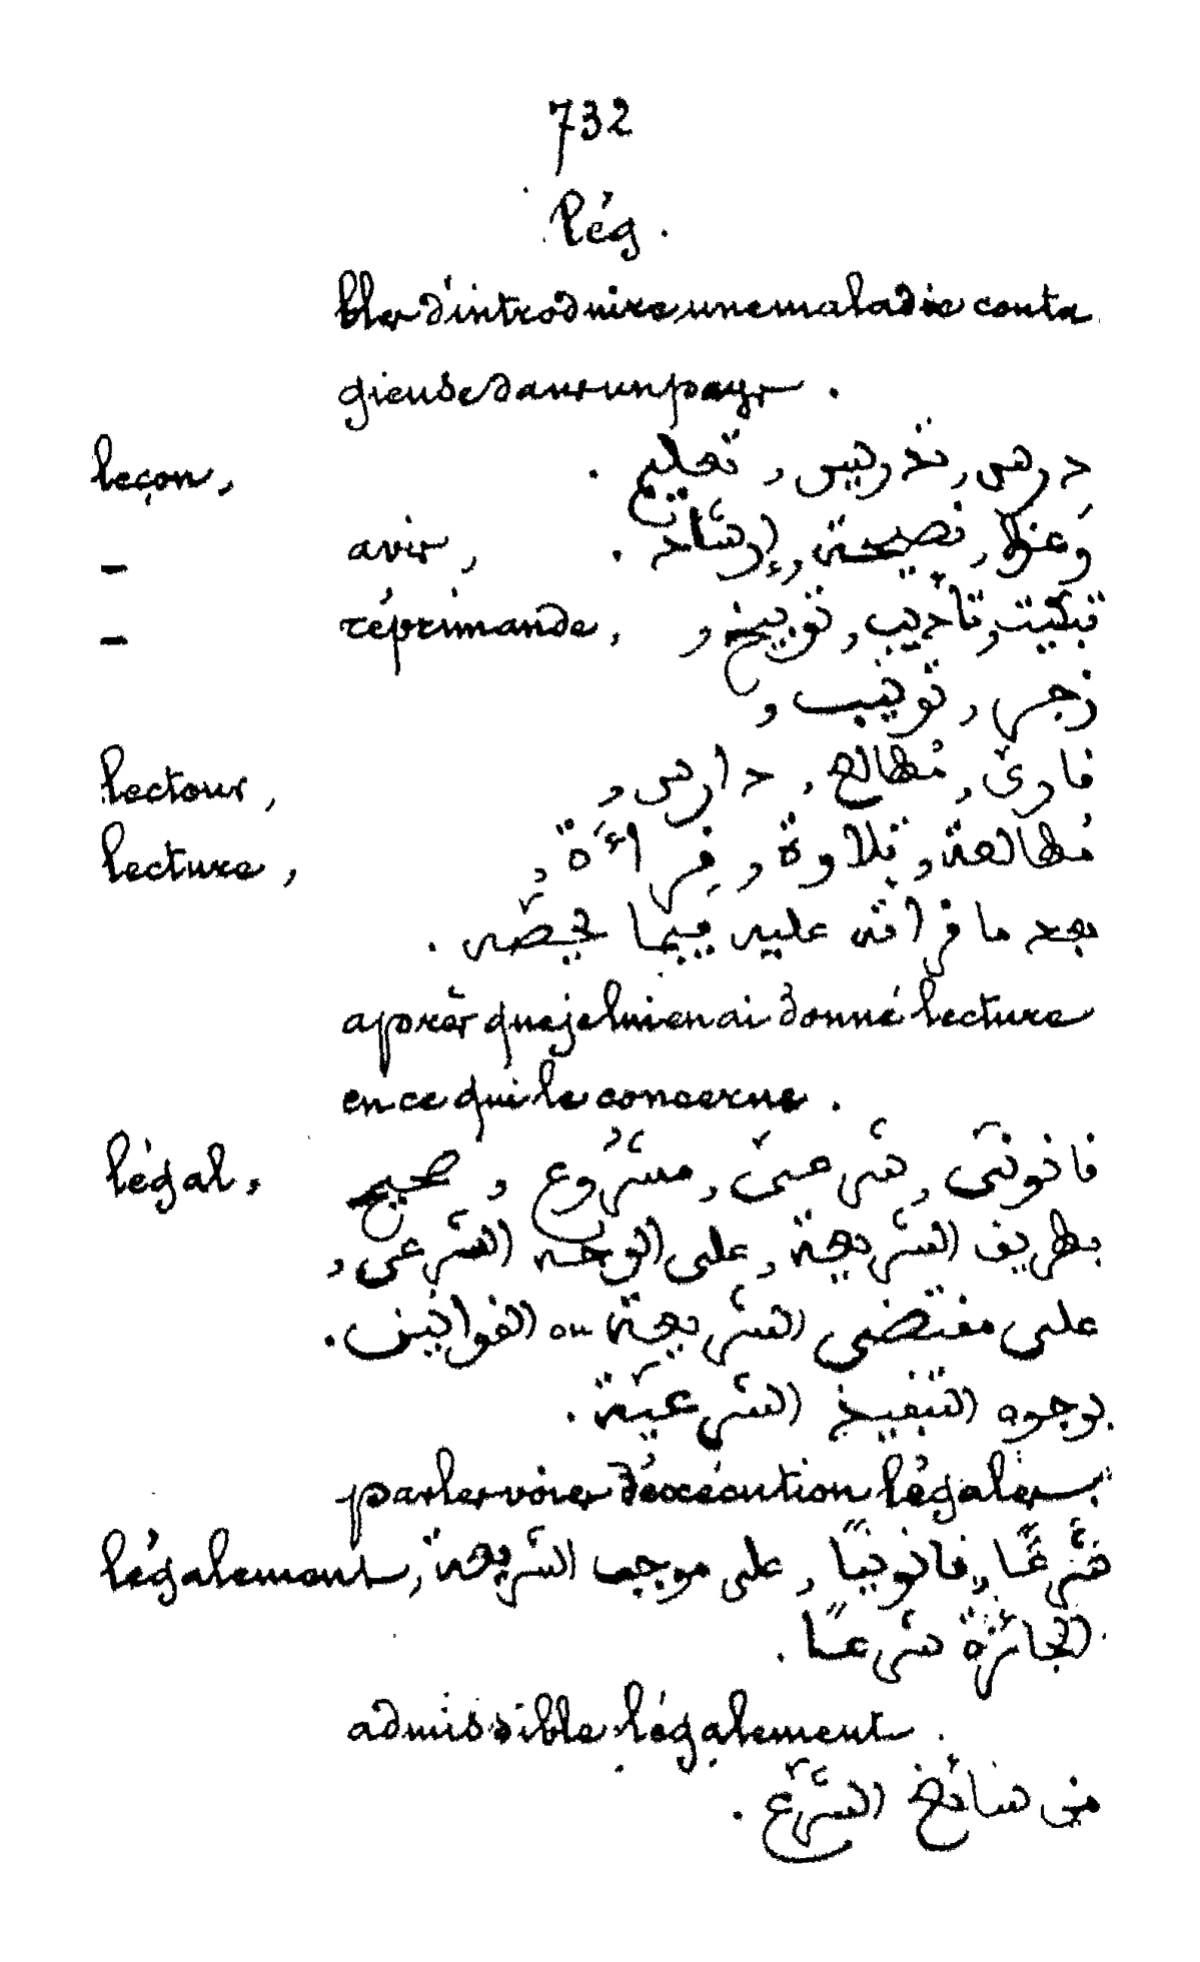 732
Lég.
bles d'introduire une maladie conta
gieuse dans un pays.
leçon, درس, تدريس, تعليم.
— avis, وَعظ, نصيحة, إرشاد.
— réprimande, تبكيت, تأديب, توبيخ,
زجر, تونيب,
lecteur, قارئ, مُطالع, دارس,
lecture, مُطالعة, تلاوة, قِراءَة,
بعد ما قرأته عليه فيما يخصّه.
après que je lui en ai donné lecture
en ce qui le concerne.
légal, قانونيّ, شَرعيّ, مشرُوع, صحيح
بطريق الشريعة, على الوجه الشرعى,
على مقتضى الشريعة ou القوانين.
بوجوه التنفيذ الشرعيّة.
par les voies d'éxécution légales.
légalement, شرعًا, قانونيًا, على موجب الشريعة,
الجائزة شرعًا.
admissible légalement.
من الشّرع.